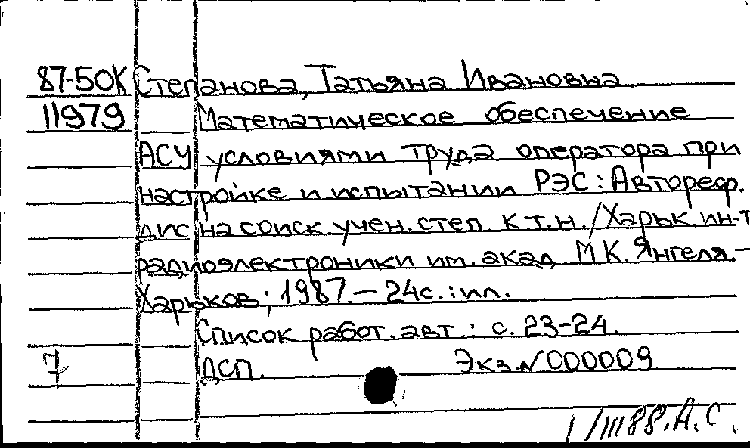 87-50К Степанова, Татьяна Ивановна
11979 Математическое обеспечение
АСУ условиями труда оператора при
настройке и испытании РЭС: Автореф.
дис на соиск учен. степ. к т.н. /Харьк ин-т
радиоэлектроники им. акад М К. Янгеля. –
Харьков; 1987 – 24с.: ил.
Список работ. авт : с. 23-24.
7 ДСП. Экз. N 000009
1/III 88. А. С.